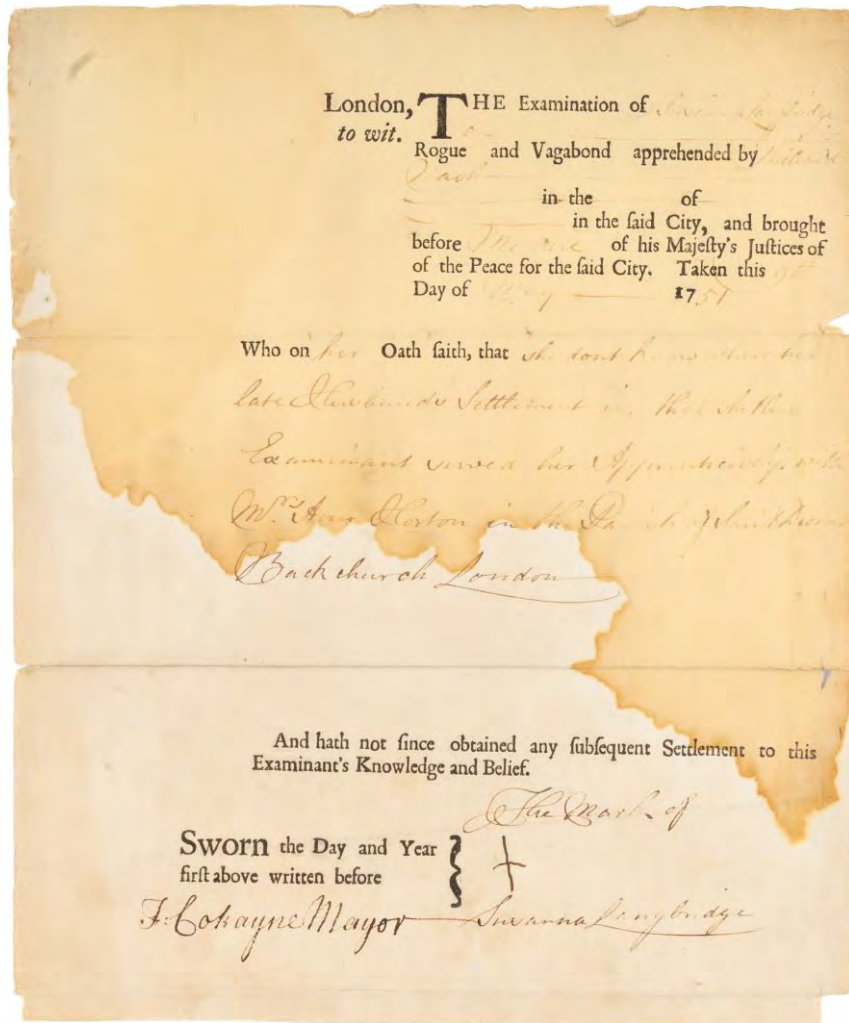 London, THE Examination of Susanna Langbridge
to wit. a
Rogue and Vagabond apprehended by
in the of
in the ſaid City, and brought
before me one of his Majeſty's Juſtices of
of the Peace for the ſaid City. Taken this
Day of 1751
Who on her Oath ſaith, that she dont know where her
late Husbands Settlement is, that she this
Examinant served her Apprenticeship with
Mrs. Horton in the Parish of
Backchurch London
And hath not ſince obtained any ſubſequent Settlement to this
Examinant's Knowledge and Belief.
The Mark of
SWORN the Day and Year
firſt above written before
F: Cokayne Mayor Susanna Langbridge